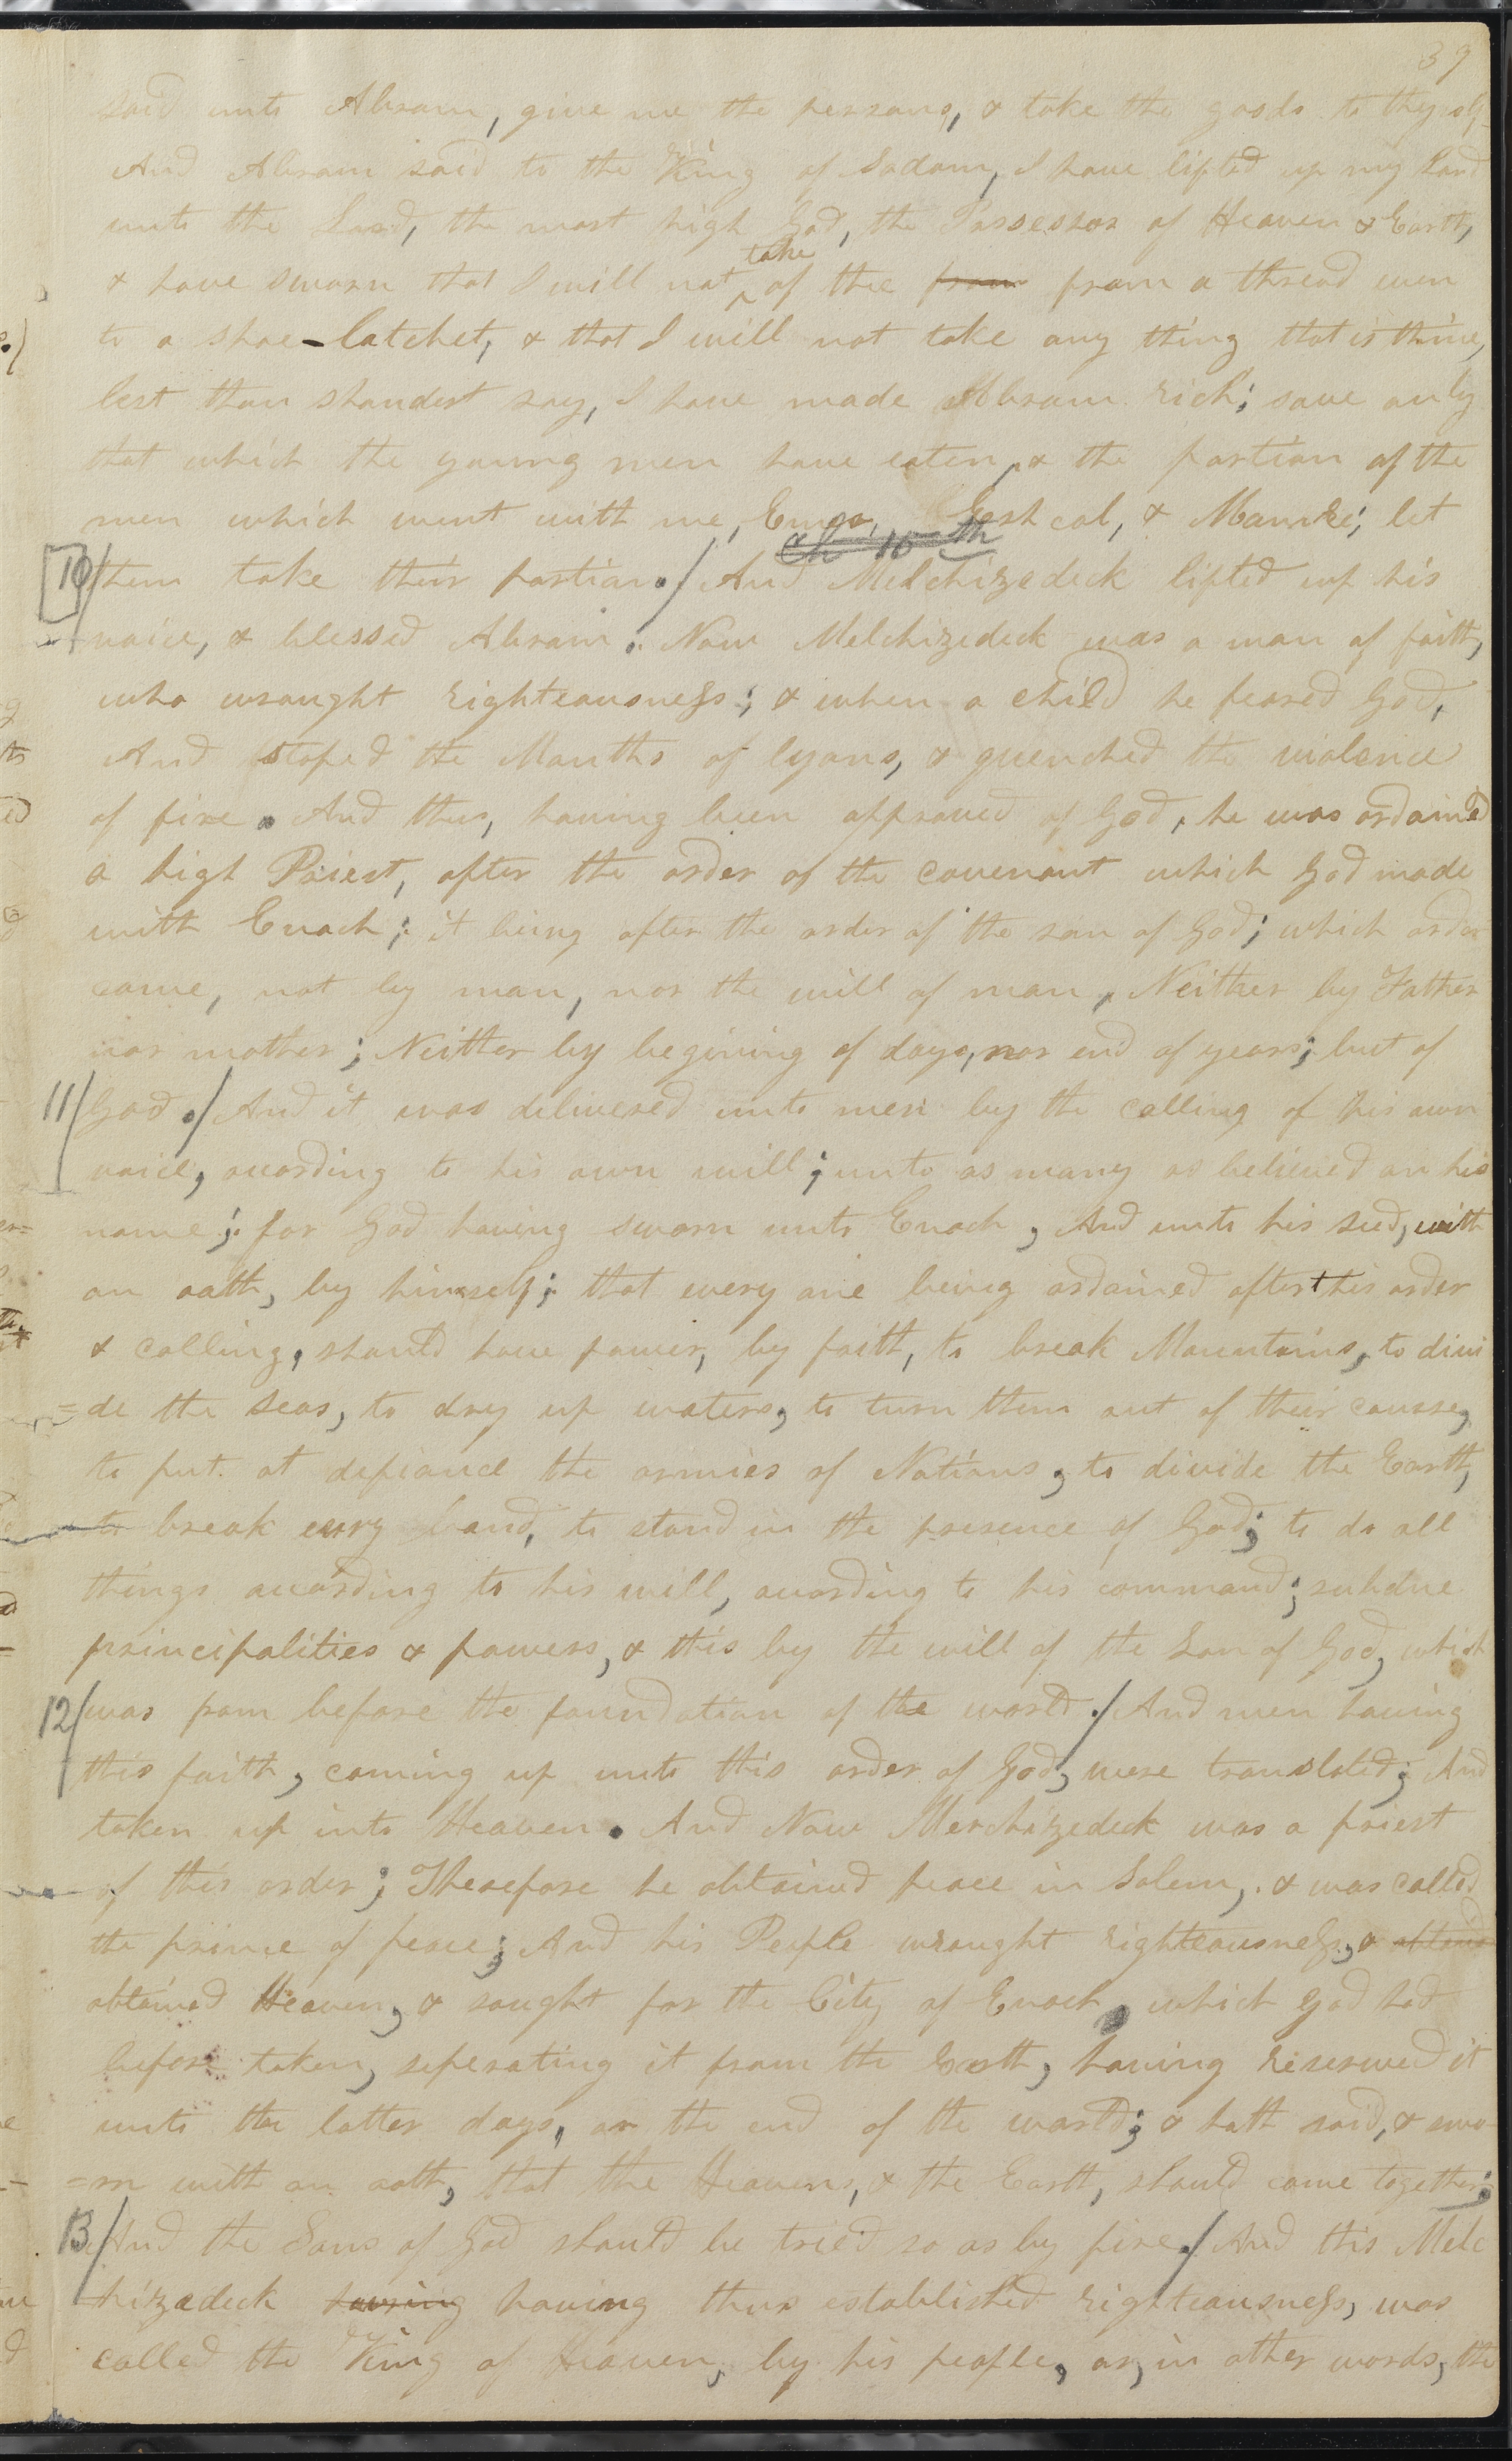 37
said unto Abram, give me the persons, & take the goods to thy self
And Abram said to the King of Sodom, I have lifted up my hand
unto the Lord, the most high God, the Possessor of Heaven & Earth,
take
& have sworn that I will not ^ of thee from from a thread even
to a shoe-latchet, & that I will not take any thing that is thine,
lest thou shouldest say, I have made Abram rich; save only
that which the young men have eaten, & the portion of the
men which went with me, Eshcol, & Mamre; let
Ch 10th
10/ them take their portion./ And Melchizedeck lifted up his
voice, & blessed Abram. Now Melchizedeck was a man of faith,
who wrought righteousness; & when a child he feared God,
And stoped the Mouths of lyons, & quenched the violence
of fire. And thus, having been approved of God, he was ordained
a high Priest, after the order of the covenant which God made
with Enoch; it being after the order of the son of God; which order
came, not by man, nor the will of man, Neither by Father
nor mother; Neither by begining of days, nor end of years; but of
11/ God./ And it was delivered unto men by the calling of his own
voice, acording to his own will; unto as many as believed on his
name; for God having sworn unto Enoch, And unto his seed, with
an oath, by himself; that every one being ordained after this order
& calling, should have power, by faith, to break Mountains, to divi
=de the seas, to dry up waters, to turn them out of their course,
to put at defiance the armies of Nations, to divide the Earth,
to break every band, to stand in the presence of God; to do all
things acording to his will, acording to his command; subdue
principalities & powers, & this by the will of the Son of God, which
12/ was from before the foundation of the world./ And men having
this faith, coming up unto this order of God, were translated; And
taken up into Heaven. And Now Merchizedeck was a priest
of this order; Therefore he obtained peace in Salem, & was called
the prince of peace; And his People wrought righteousness, & obtained
obtained Heaven, & sought for the City of Enoch, which God had
before taken, seperating it from the Earth, having reserved it
unto the latter days, or the end of the world; & hath said, & swo
=rn with an oath, that the Heavens, & the Earth, should come together;
13/ And the Sons of God should be tried so as by fire./ And this Melc
hizedeck having having thus established righteousness, was
called the King of Heaven, by his people, or, in other words, the